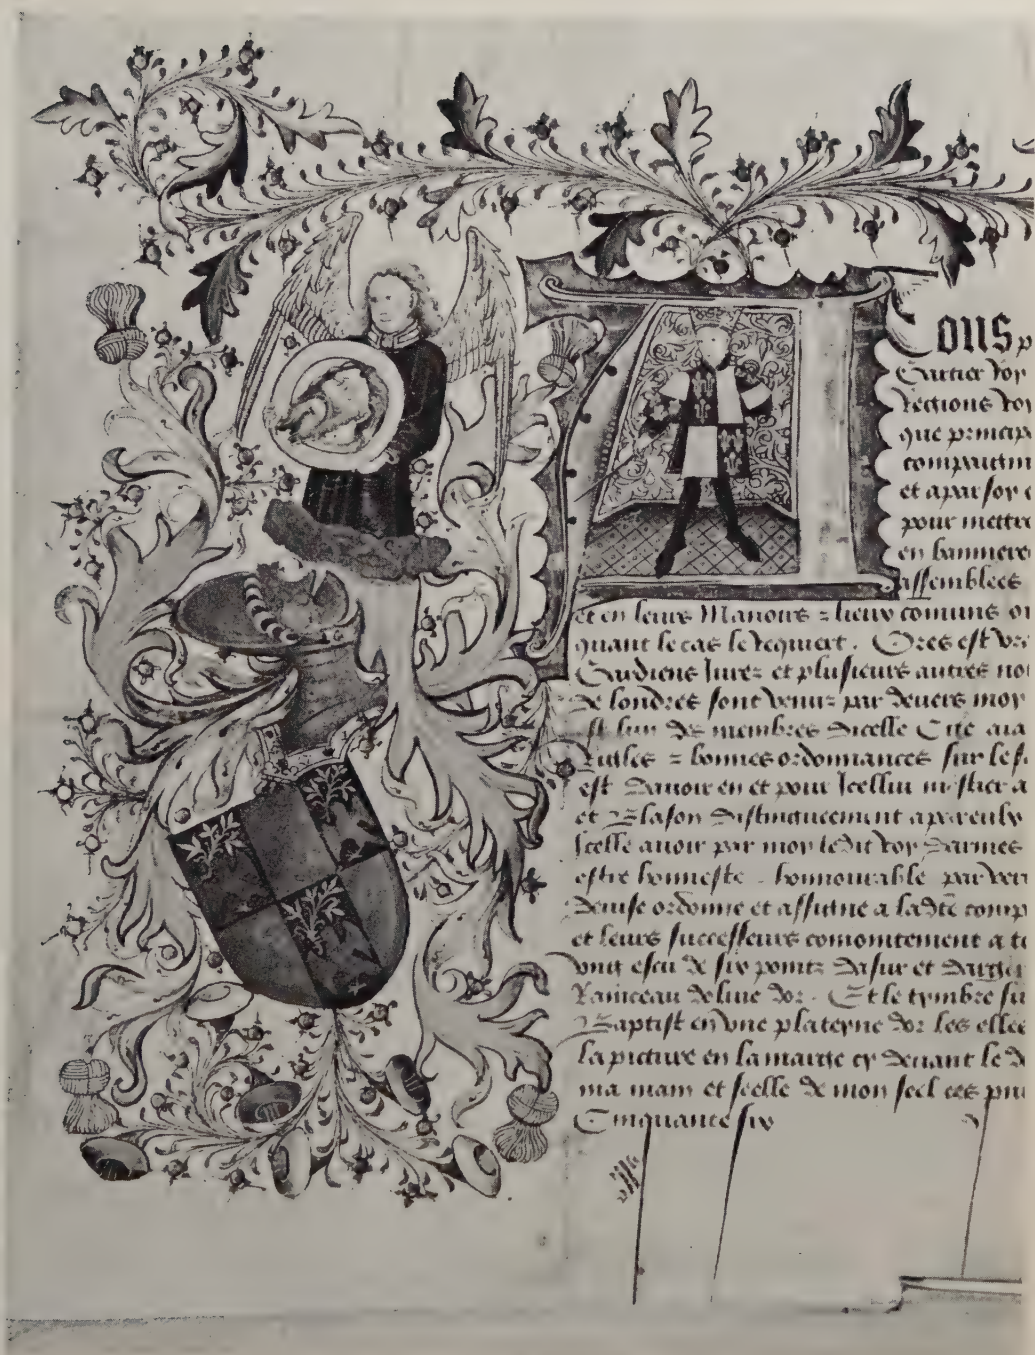 Tous p
Gartier Roy
que princip
et apar soy
pour mettre
en banniere
assemblees
et en leurs Manoirs & lieux comuns ou
quant le cas le requiert. Ores est vr
Gardiens Jurez et plusieurs autres no
de londres sont venuz par devers moy
est lun des membres dicelle Cite aia
Rieules & bonnes ordonnances sur le f
est Savoir en et pour Icellui mestier a
et Blason distinctement apar eulx
Icelle avoir par moy ledit roy darmes
estre honneste honnourable par ver
devise ordonne et assigne a ladte comp
et leurs successeurs comointement a to
ung escu de six pointz dasur et dargen
Rainceau dolive dor. Et le tymbre su
Baptist en une plateyne dor les elles
la picture en la marge cy devant le d
ma main et seelle de mon seel ces pn
Cinquante six